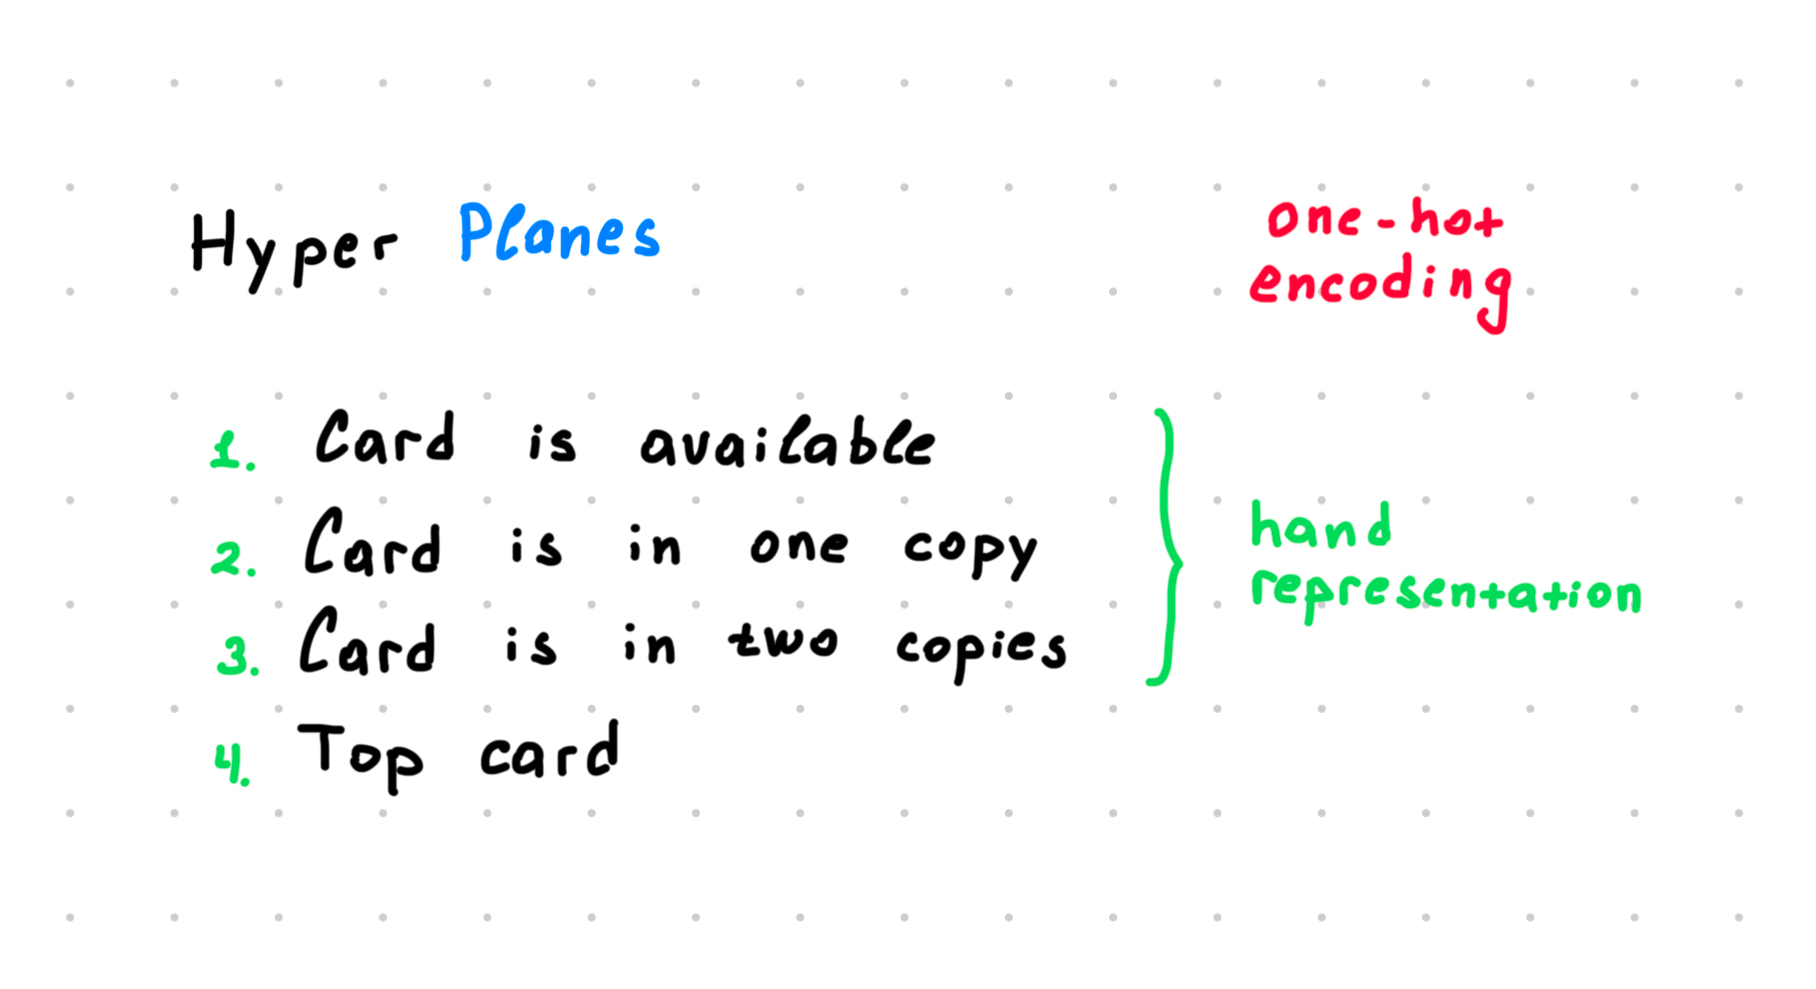 Hyper Planes
one-hot
encoding
1. Card is available
2. Card is in one copy
3. Card is in two copies
4. Top card
hand
representation